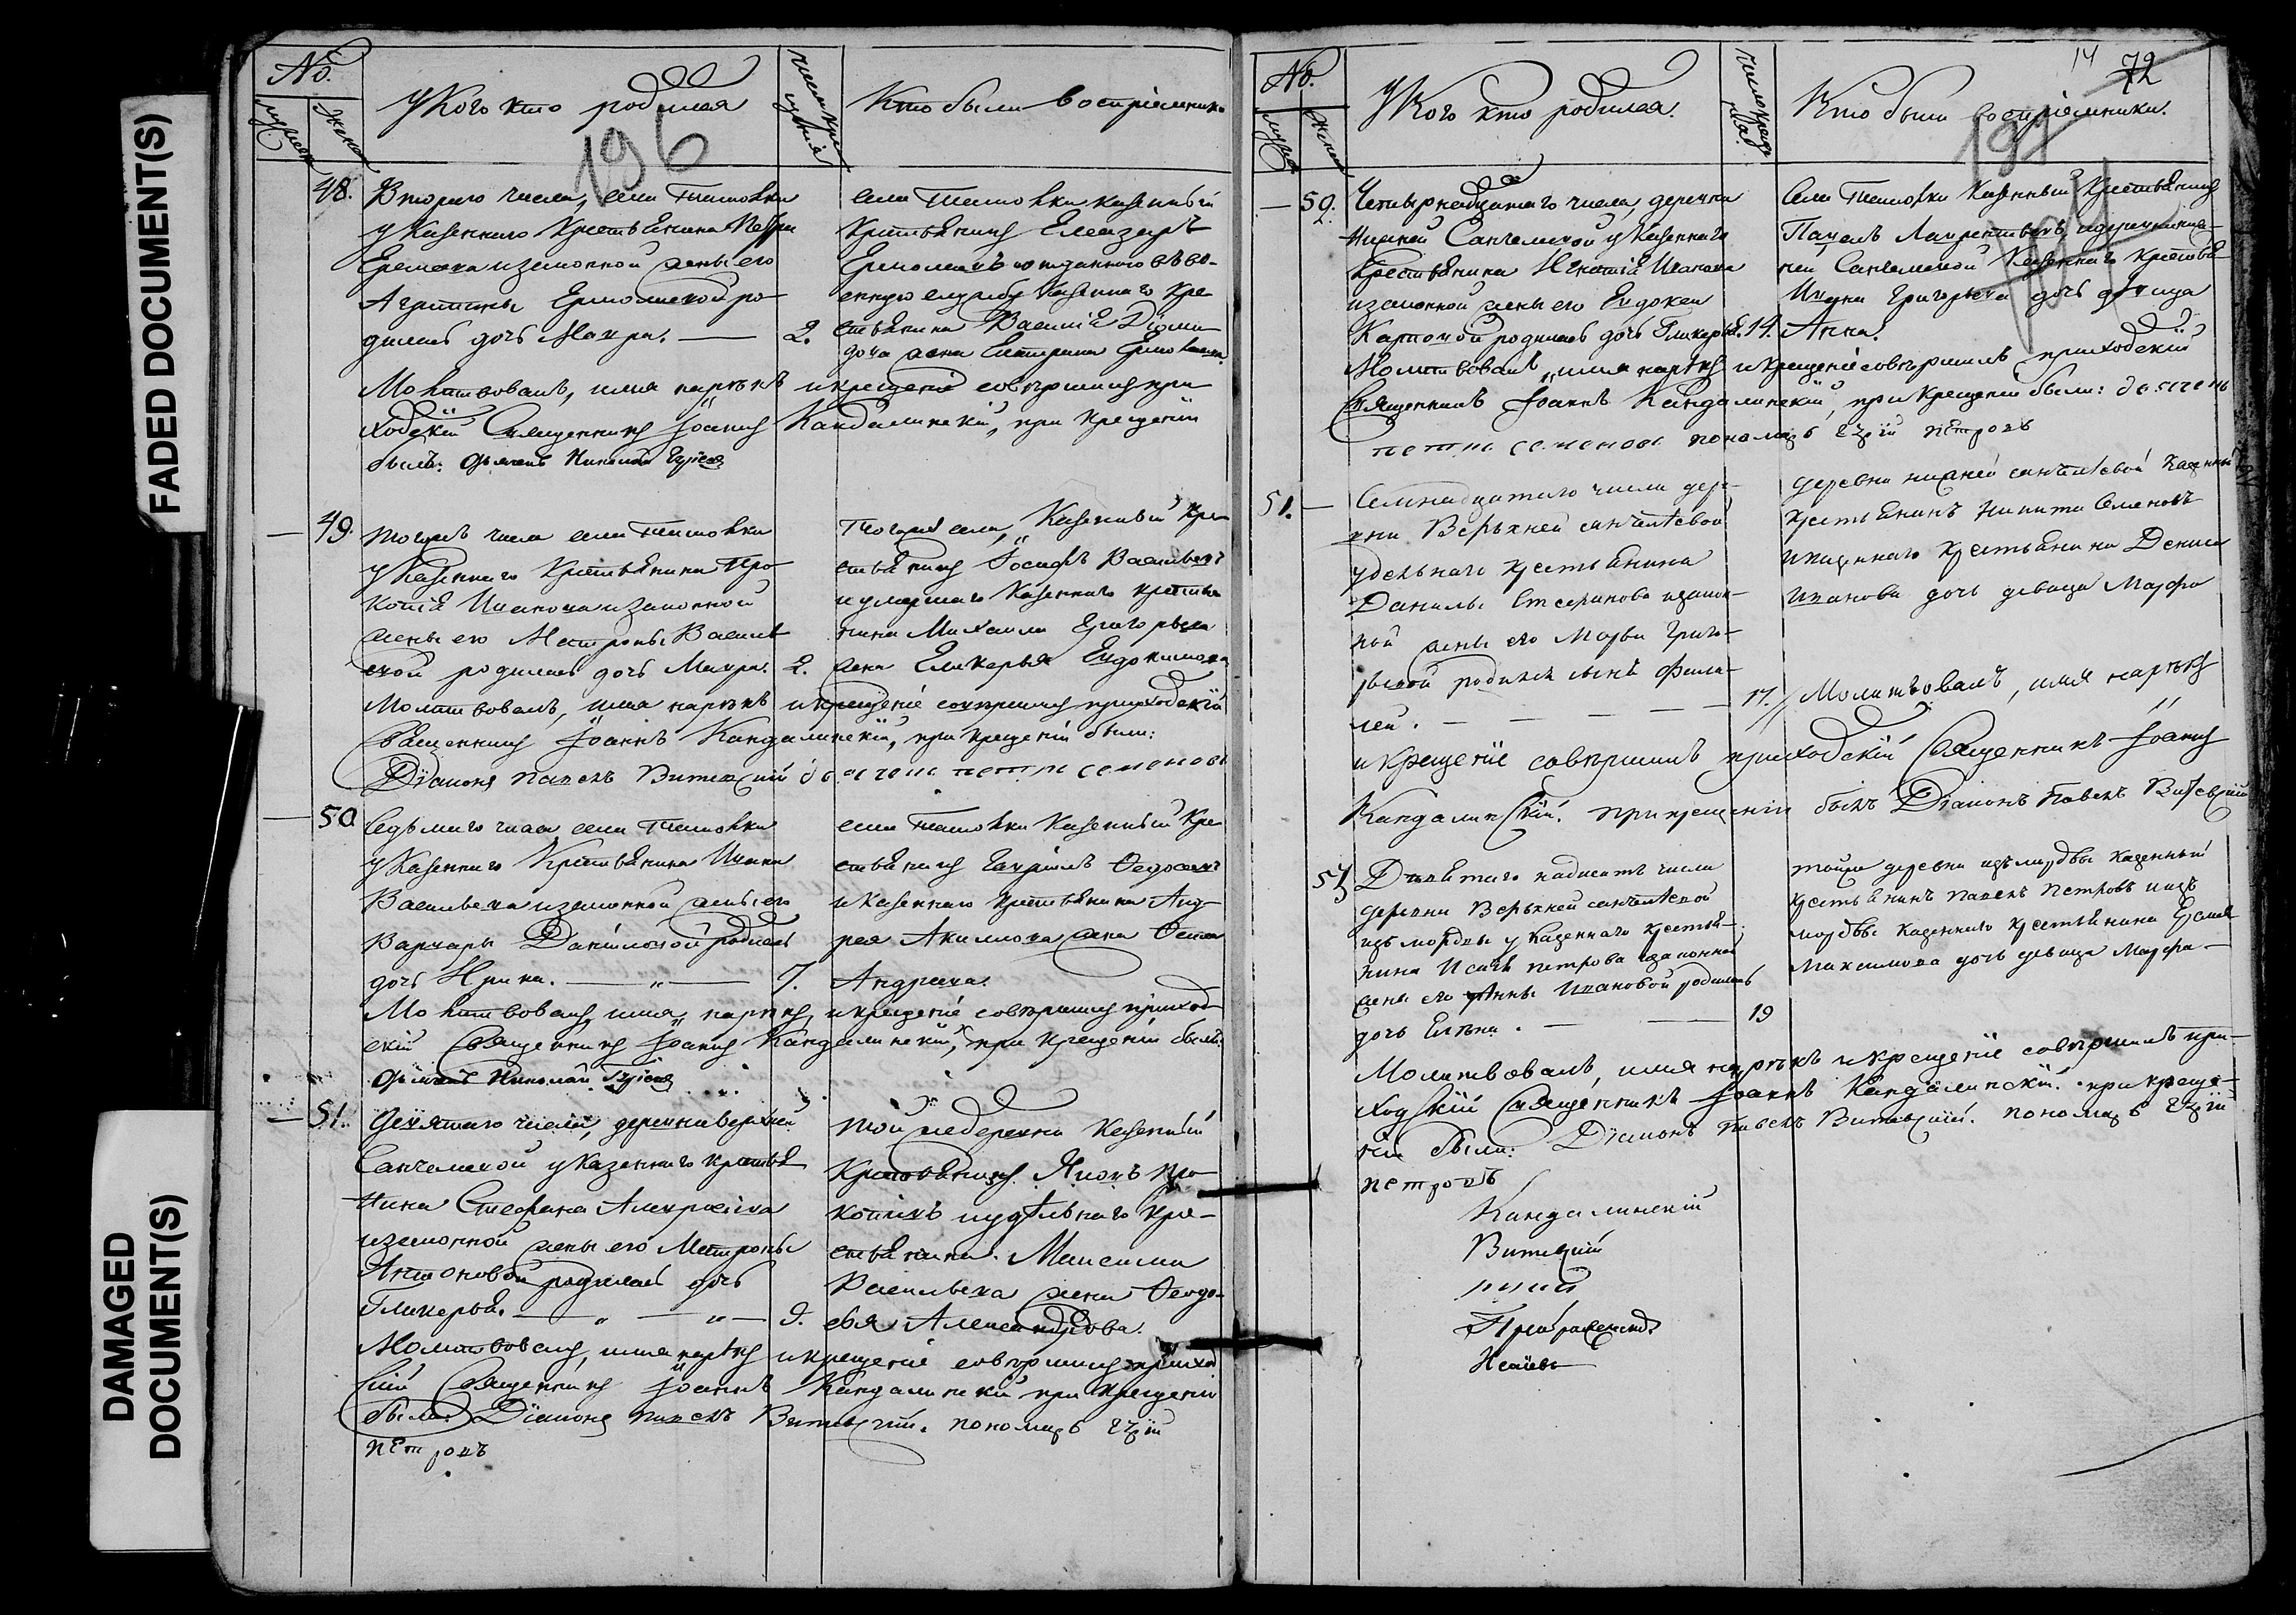 FADED DOCUMENT(S)
DAMAGED
DOCUMENT(S)
No.
мужск
женск
У Кого кто родился
число крещенія
Кто были воспріемники
196
48.
Втораго числа, села
у Казеннаго Крестьянина Петра
Ермолаева и законной жены его
Агрипины Ермолаевой ро-
дилась дочь Мавра.
2.
села казенный
Крестьянинъ Елеазаръ
Ермолаевъ и отданнаго въ во-
енную службу Казеннаго Кре
стьянина Василія
жена Екатерина Ермолаева.
Молитвовалъ, имя нарѣкъ и крещеніе совершилъ при
ходскій Священникъ Іоаннъ Кандалинскій, при крещеніи
былъ: дьячекъ Николай
49.
Тогожъ числа села
у Казеннаго Крестьянина Про
копія Иванова и законной
жены его Матроны Василь
евой родилась дочь Мавра.
2.
Тогожъ села, Казенный Кре
стьянинъ Іосифъ Васильевъ
и умершаго Казеннаго крестья
нина Михаила Григорьева
жена Гликерья Евдокимова
Молитвовалъ, имя нарѣкъ и крещеніе совершилъ приходскій
Священникъ Іоаннъ Кандалинскій, при крещеніи были:
Діаконъ Павелъ Витевскій дьячекъ петръ семеновъ
50
Седьмаго числа, села
у Казеннаго Крестьянина Ивана
Васильева и законной жены его
Варвары Даниловой родилась
дочь Ирина.
7.
села Казенный Кре
стьянинъ Гавріилъ Федосеевъ
и Казеннаго крестьянина Анд-
рея Акимова жена
Андреева.
Молитвовалъ, имя нарѣкъ, и крещеніе совершилъ приход
скій Священникъ Іоаннъ Кандалинскій, при крещеніи былъ:
дьячекъ Николай
51.
Девятаго числа, деревни верхней
Санчелеевой у Казеннаго крестья
нина Стефана
и законной жены его Матроны
Антоновой родилась дочь
Гликерья.
9.
Той же деревни Казенный
Крестьянинъ Яковъ Про
копіевъ и удѣльнаго Кре-
стьянина Максима
Васильева жена Феодо-
сья Александрова.
Молитвовалъ, имя нарѣкъ и крещеніе совершилъ приход
скій Священникъ Іоаннъ Кандалинскій при крещеніи
были: Діаконъ Павелъ Витевскій. пономарь
петровъ
14 72
No.
мужск
женск
У Кого кто родился.
число крещенія
Кто были воспріемники.
197
52.
Четырнадцатаго числа, деревни
Нижней Санчелеевой у Казеннаго
Крестьянина Игнатія Иванова
и законной жены его Евдокеи
Карповой родилась дочь Гликерья.
14.
Села Казенный Крестьянинъ
Павелъ Лаврентьевъ, и деревни ниж-
ней Санчелеевой Казеннаго крестья
Ивана Григорьева дочь девица
Анна.
Молитвовалъ, имя нарѣкъ и крещеніе совершилъ приходскій
Священникъ Іоаннъ Кандалинскій, при крещеніи были: дьячекъ
петръ семеновъ пономарь петровъ
51.
Семнадцатаго числа дере
вни Верьхней санчелѣевой
удельнаго крестьянина
Данилы Стефанова и закон-
ной жены его Марьи Григо-
рьевой родился сынъ Фила-
тей.
17.
деревни нижней санчелѣевой казенный
крестьянинъ Никита Семеновъ
и казеннаго крестьянина Дениса
Иванова дочь девица Марфа
Молитвовалъ, имя нарѣкъ
и крещеніе совершилъ приходскій Священникъ Іоаннъ
Кандалинскій. при крещеніи былъ Діаконъ Павелъ Витевскій
53
Девятаго надесять числа
деревни Верьхней санчелѣевой
изъ мордвы у Казеннаго крестья-
нина Исаія петрова и законной
жены его Анны Ивановой родилась
дочь Елѣна.
19
тойже деревни изъ мордвы казенный
крестьянинъ павелъ петровъ и изъ
мордвы казеннаго крестьянина
Максимова дочь девица Марфа
Молитвовалъ, имя нарѣкъ и крещеніе совершилъ при-
ходскій Священникъ Іоаннъ Кандалинскій. при креще-
ніи были: Діаконъ Павелъ Витевскій. пономарь
петровъ
Кандалинскій
Витевскій